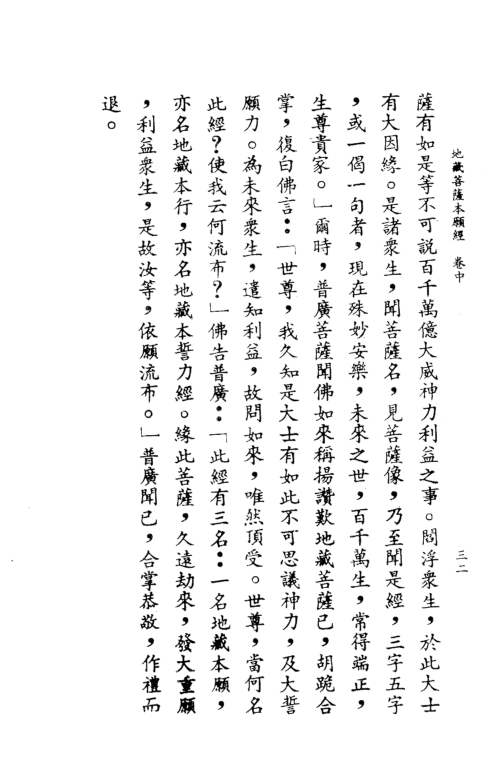 地藏菩薩本願經　卷中
三二
薩有如是等不可說百千萬億大威神力利益之事。閻浮眾生，於此大士
有大因緣。是諸眾生，聞菩薩名，見菩薩像，乃至聞是經，三字五字
，或一偈一句者，現在殊妙安樂，未來之世，百千萬生，常得端正，
生尊貴家。」爾時，普廣菩薩聞佛如來稱揚讚歎地藏菩薩已，胡跪合
掌，復白佛言：「世尊，我久知是大士有如此不可思議神力，及大誓
願力。為未來眾生，遣知利益，故問如來，唯然頂受。世尊，當何名
此經？使我云何流布？」佛告普廣：「此經有三名：一名地藏本願，
亦名地藏本行，亦名地藏本誓力經。緣此菩薩，久遠劫來，發大重願
，利益眾生，是故汝等，依願流布。」普廣聞已，合掌恭敬，作禮而
退。